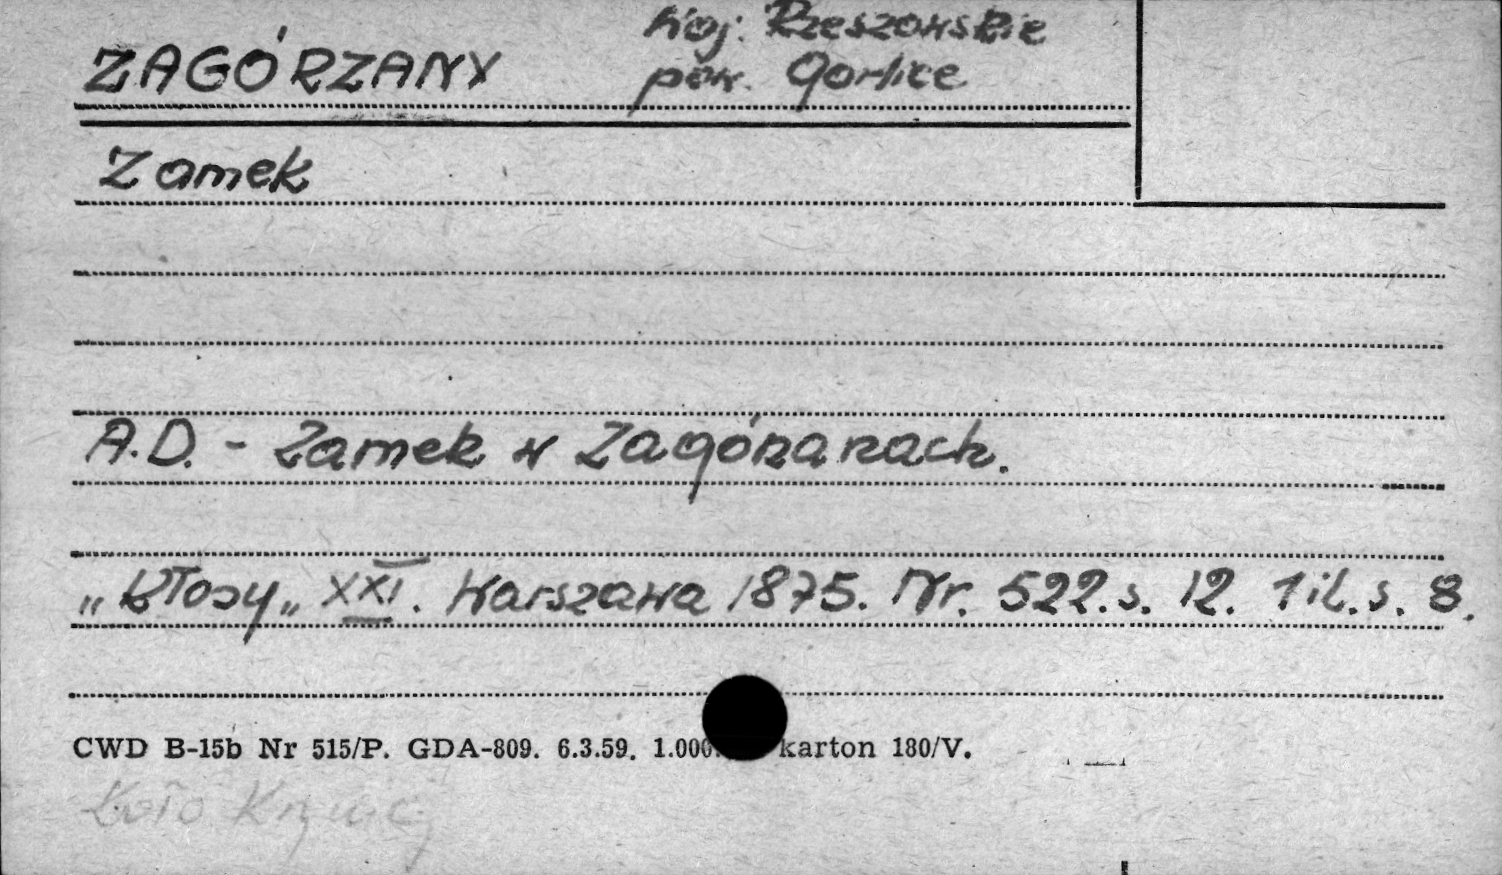 ZAGÓRZANY
woj. Rzeszowskie
pow. Gorlice
Zamek
A.D. - Zamek w Zagórzanach.
„Kłosy„ XXI. Warszawa 1875. Nr. 522. s. 12. 1 il. s. 8.
CWD B-15b Nr 515/P. GDA-809. 6.3.59. 1.000. karton 180/V.
Koło